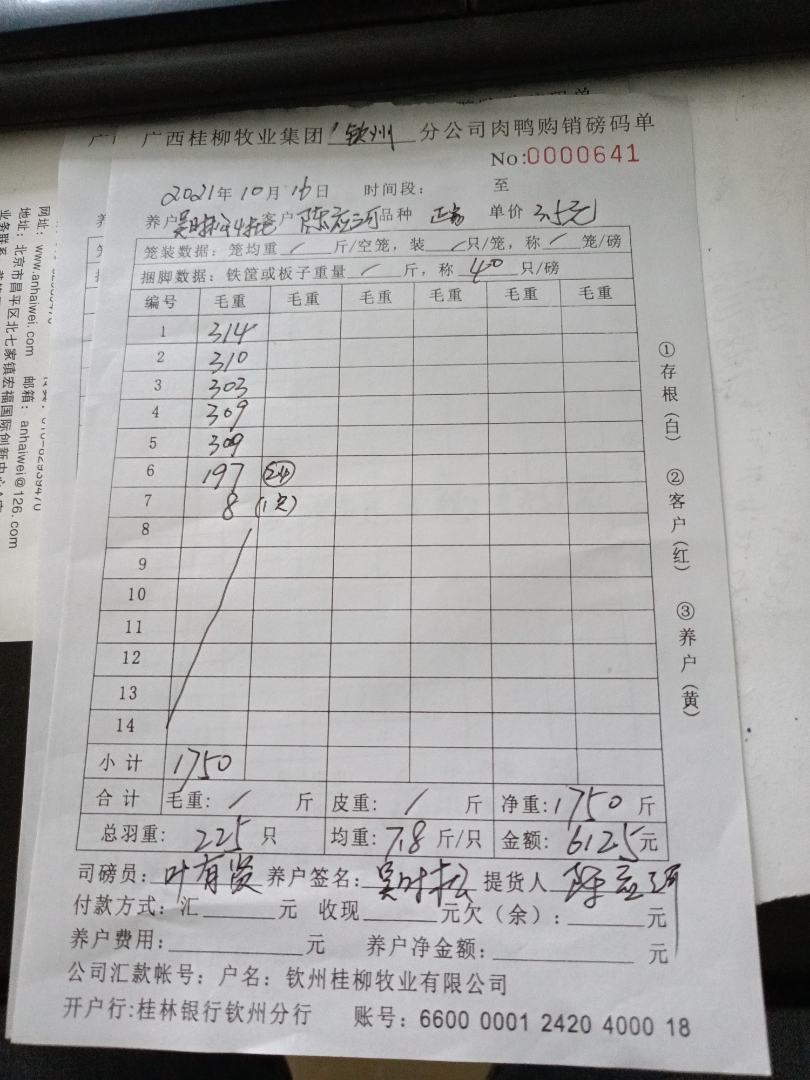 广西桂柳牧业集团 钦州 分公司肉鸭购销磅码单
No:0000641
2021年10月16日 时间段: 至
养户 客户 品种 正常 单价 3.5元
笼装数据: 笼均重 / 斤/空笼, 装 / 只/笼, 称 / 笼/磅
捆脚数据: 铁筐或板子重量 / 斤, 称 40 只/磅
编号 毛重 毛重 毛重 毛重 毛重 毛重
1 314
2 310
3 303
4 309
5 309
6 197
7 8 (1只)
8
9
10
11
12
13
14
小计 1750
合计 毛重: / 斤 皮重: / 斤 净重: 1750 斤
总羽重: 225 只 均重: 7.8 斤/只 金额: 6125 元
司磅员: 叶有贤 养户签名: 提货人
付款方式: 汇 元 收现 元欠(余): 元
养户费用: 元 养户净金额: 元
公司汇款帐号: 户名: 钦州桂柳牧业有限公司
开户行:桂林银行钦州分行 账号: 6600 0001 2420 4000 18
①存根(白) ②客户(红) ③养户(黄)
网址: www.anhaiwei.com 邮箱: anhaiwei@126.com
地址: 北京市昌平区北七家镇宏福国际创新中心
业务联系